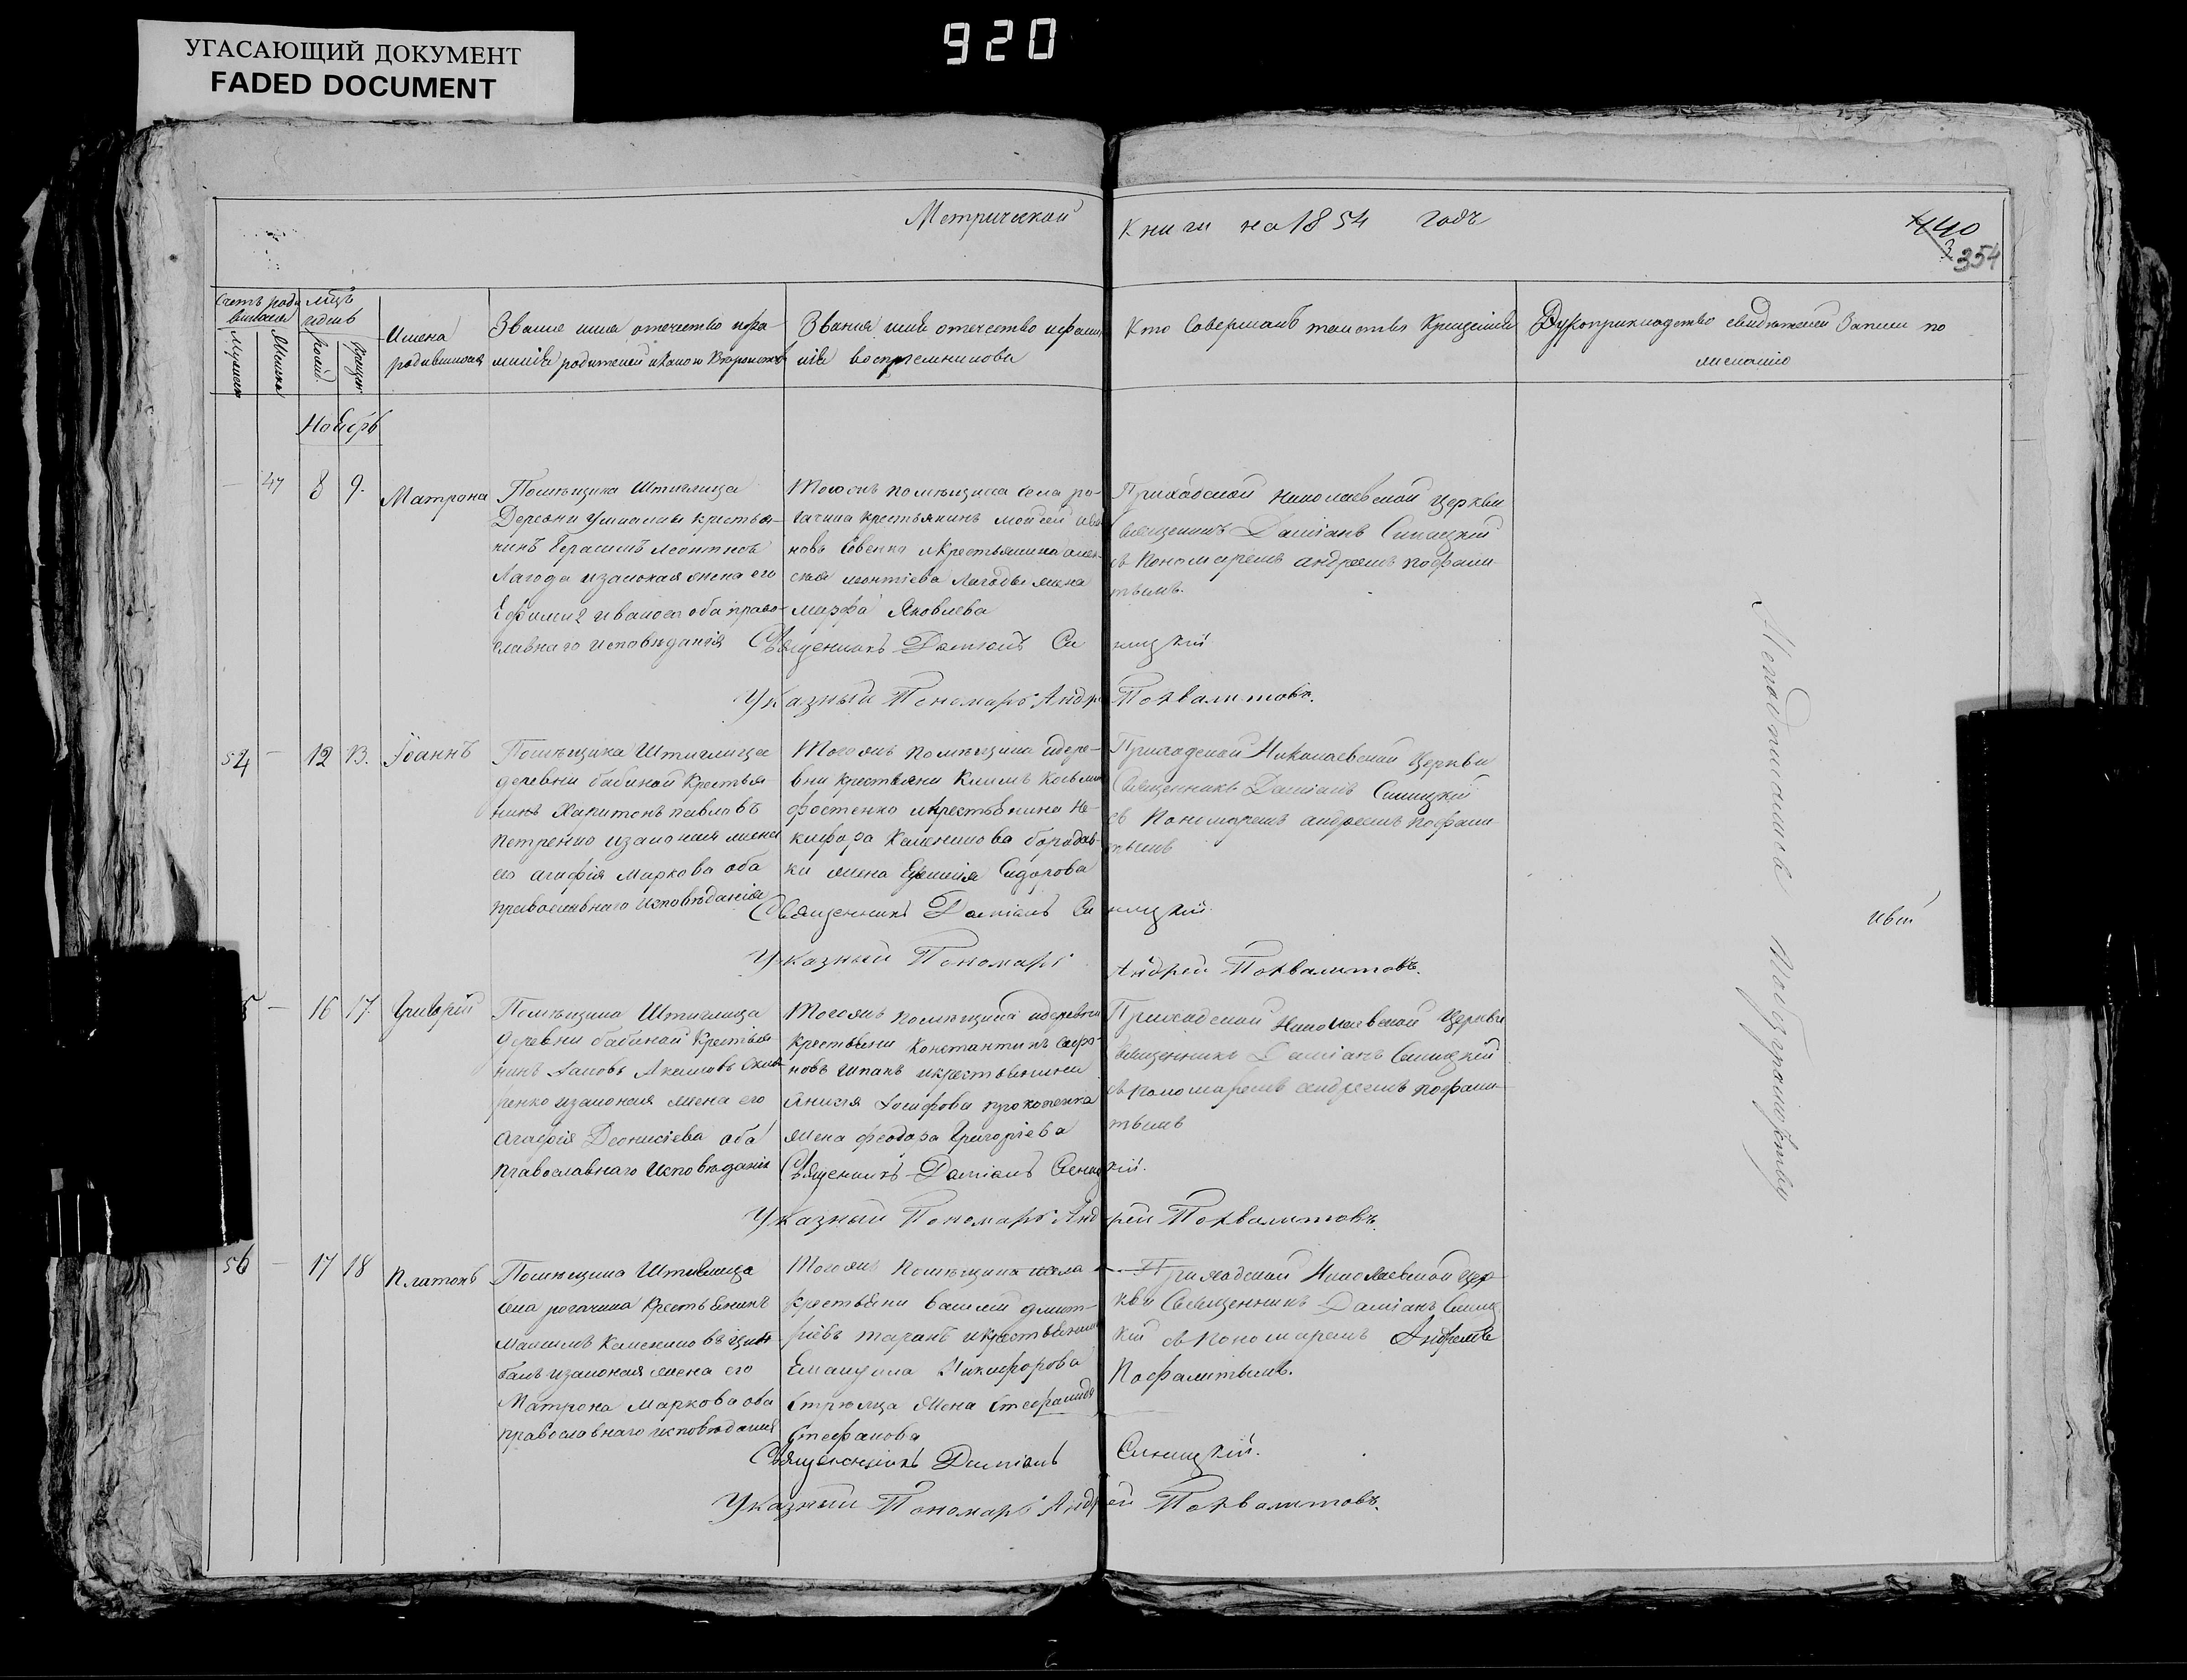 УГАСАЮЩИЙ ДОКУМЕНТ
FADED DOCUMENT
920
Метрической книги на 1854 годъ
440
354
Счетъ роди
вшихся
Мужеск
Женска
Имена
родившихся
Званіе имя отечество и фа-
миліи родителей и какого
Званія имя отечество и фами
ліи воспріемниковъ
Кто Совершалъ таинство Крещенія
Рукоприкладство свидетелей Записи по
желанію
Ноябрь
— 47 8 9. Матрона
Помѣщика Штиглица
Деревни крестья-
нинъ Герасимъ Леонтіевъ
Лагода и законная жена его
Ефимія Иванова оба право-
славнаго исповѣданія
Тогожъ помѣщика села ро-
гачика крестьянинъ Мойсей Ива
новъ и крестьянина Алек-
сѣя Леонтіева Лагоды жена
Марфа Яковлева
Приходской Николаевской Церкви
Священникъ Даміанъ Синицкій
съ Пономаремъ Андреемъ
Священникъ Даміанъ Синицкій
Указный Пономарь Андр Похвалитовъ.
54 — 12 13. Іоаннъ
Помѣщика Штиглица
деревни бабиной Крестья
нинъ Капитонъ Павловъ
Петренко и законная жена
его Агафія Маркова оба
православнаго исповѣданія
Тогожъ помѣщика и дере-
вни крестьяни Климъ Косьмин
Фостенко и крестьянина Не-
кифора борода-
ки жена Ефимія Сидорова
Приходской Николаевской Церкви
Священникъ Даміанъ Синицкій
съ Пономаремъ Андреемъ
Священникъ Даміанъ Синицкій.
Указный Пономарь Андрей Похвалитовъ.
5 — 16 17. Григорій
Помѣщика Штиглица
деревни бабиной Крестья
нинъ Іаковъ Акимовъ
ренко и законная жена его
Агафія Деонисіева оба
православнаго исповѣданія
Тогожъ помѣщика и деревни
крестьяни Константинъ
новъ и крестьянина
Іосифова Прокопенка
жена Феодора Григоріева
Приходской Николаевской Церкви
Священникъ Даміанъ Синицкій
съ пономаремъ Андреемъ
Священникъ Даміанъ Синицкій.
Указный Пономарь Андрей Похвалитовъ.
56 — 17 18 Платонъ
Помѣщика Штиглица
села рогачика Крестьянинъ
Максимъ
и законная жена его
Матрона Маркова оба
православнаго исповѣданія
Тогожъ Помѣщика и села
крестьяни Василій Дмит-
ріевъ таранъ и крестьянина
Емануила Никифорова
жена Стефанида
Стефанова
Приходской Николаевской Цер-
кви Священникъ Даміанъ Синиц
кій съ пономаремъ Андреемъ
Священникъ Даміанъ Синицкій.
Указный Пономарь Андрей Похвалитовъ.
Неподписались по безграмотству